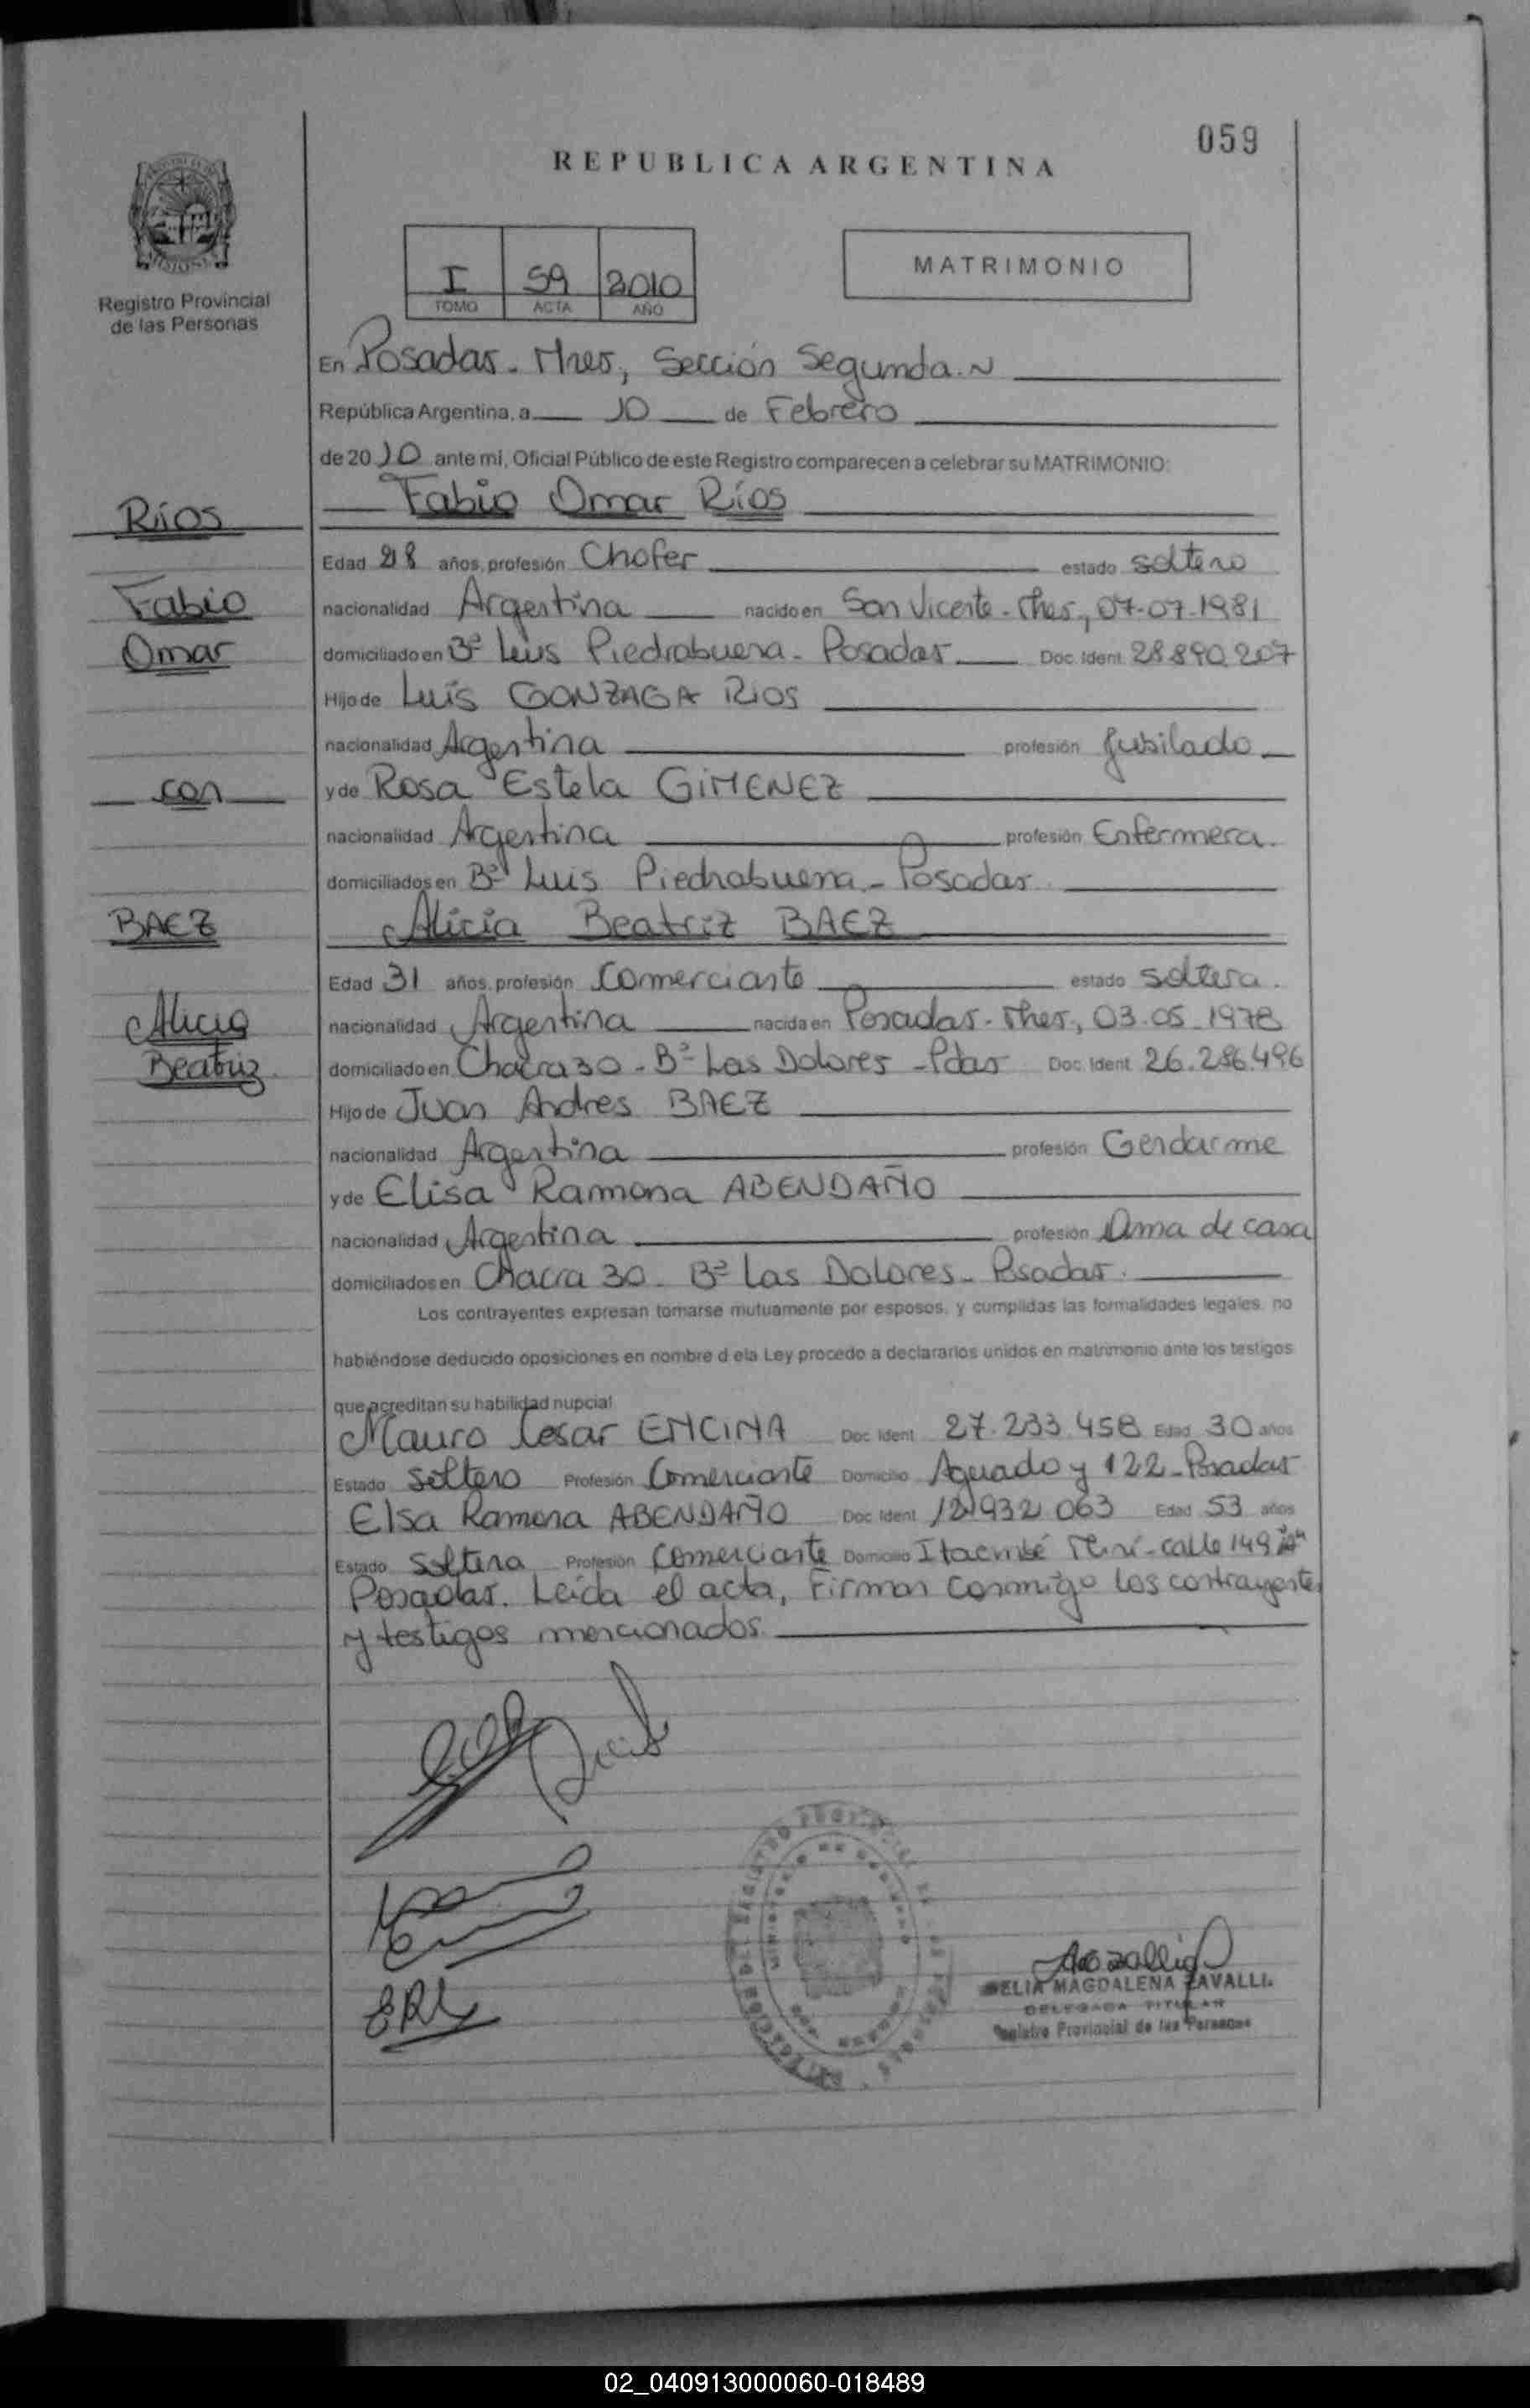 059
REPUBLICA ARGENTINA
Registro Provincial
de las Personas
I 59 2010
TOMO ACTA AÑO
MATRIMONIO
En Posadas - Mnes, Sección Segunda.
República Argentina, a 10 de Febrero
de 2010 ante mi, Oficial Público de este Registro comparecen a celebrar su MATRIMONIO:
Ríos Fabio Omar Ríos
Edad 28 años, profesión Chofer estado soltero
Fabio nacionalidad Argentina nacido en San Vicente - Mnes, 07-07-1981
Omar domiciliado en Bº Luis Piedrabuena - Posadas Doc. Ident. 28.890.207
Hijo de Luis GONZAGA RIOS
nacionalidad Argentina profesión Jubilado
con y de Rosa Estela GIMENEZ
nacionalidad Argentina profesión Enfermera.
domiciliados en Bº Luis Piedrabuena - Posadas
BAEZ Alicia Beatriz BAEZ
Edad 31 años, profesión Comerciante estado soltera.
Alicia nacionalidad Argentina nacida en Posadas - Mnes, 03.05.1978
Beatriz domiciliado en Chacra 30 - Bº Las Dolores - Pdas Doc. Ident. 26.286.496
Hijo de Juan Andres BAEZ
nacionalidad Argentina profesión Gendarme
y de Elisa Ramona ABENDAÑO
nacionalidad Argentina profesión Ama de casa
domiciliados en Chacra 30 - Bº Las Dolores - Posadas.
Los contrayentes expresan tomarse mutuamente por esposos, y cumplidas las formalidades legales, no
habiéndose deducido oposiciones en nombre d ela Ley procedo a declararlos unidos en matrimonio ante los testigos
que acreditan su habilidad nupcial
Mauro Cesar ENCINA Doc. Ident. 27.233.458 Edad 30 años
Estado Soltero Profesión Comerciante Domicilio Aguado y 122 - Posadas
Elsa Ramona ABENDAÑO Doc. Ident. 12.932.063 Edad 53 años
Estado Soltera Profesión Comerciante Domicilio Itaembé Miní - calle 149
Posadas. Leída el acta, Firman conmigo los contrayentes
y testigos mencionados.
MAGDALENA ZAVALLI
DELEGADA TITULAR
Registro Provincial de las Personas
02_040913000060-018489